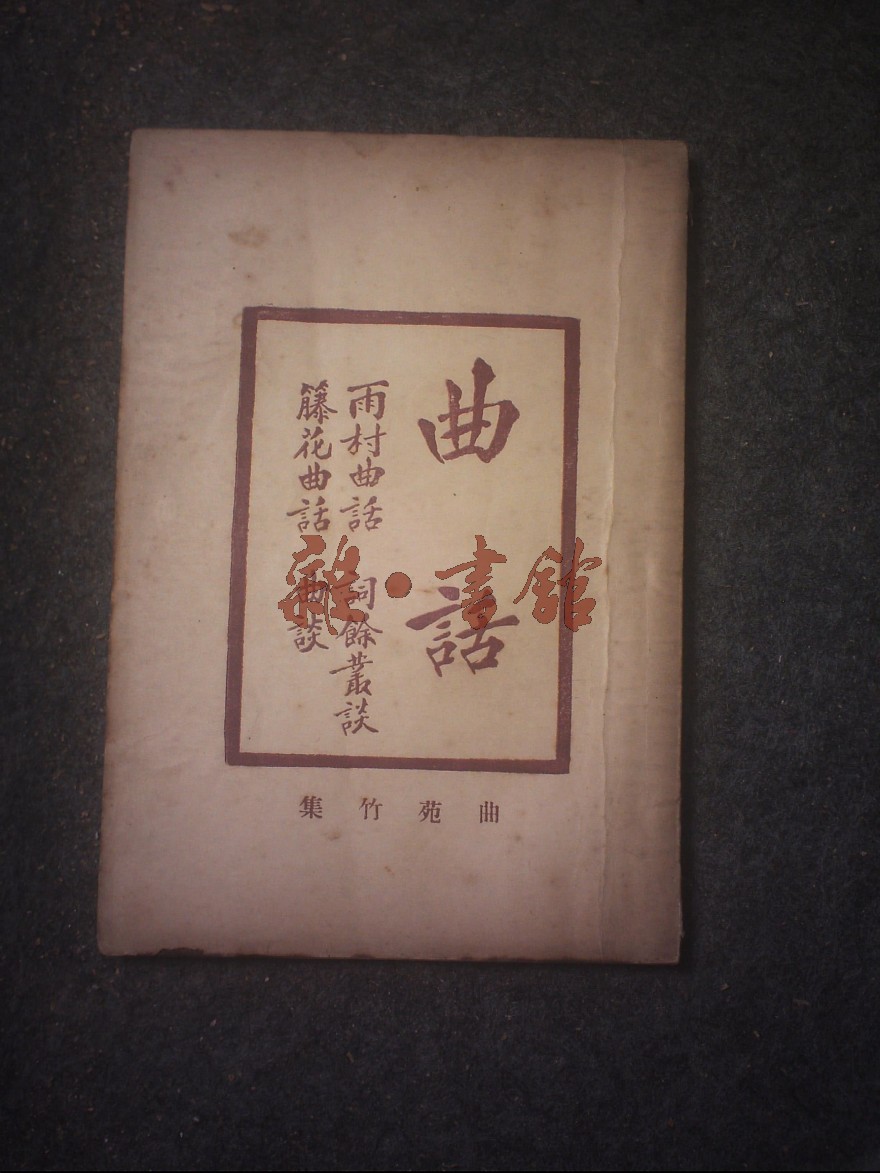 曲話
雨村曲話 詞餘叢談
籐花曲話 曲談
曲苑竹集
雜·書館